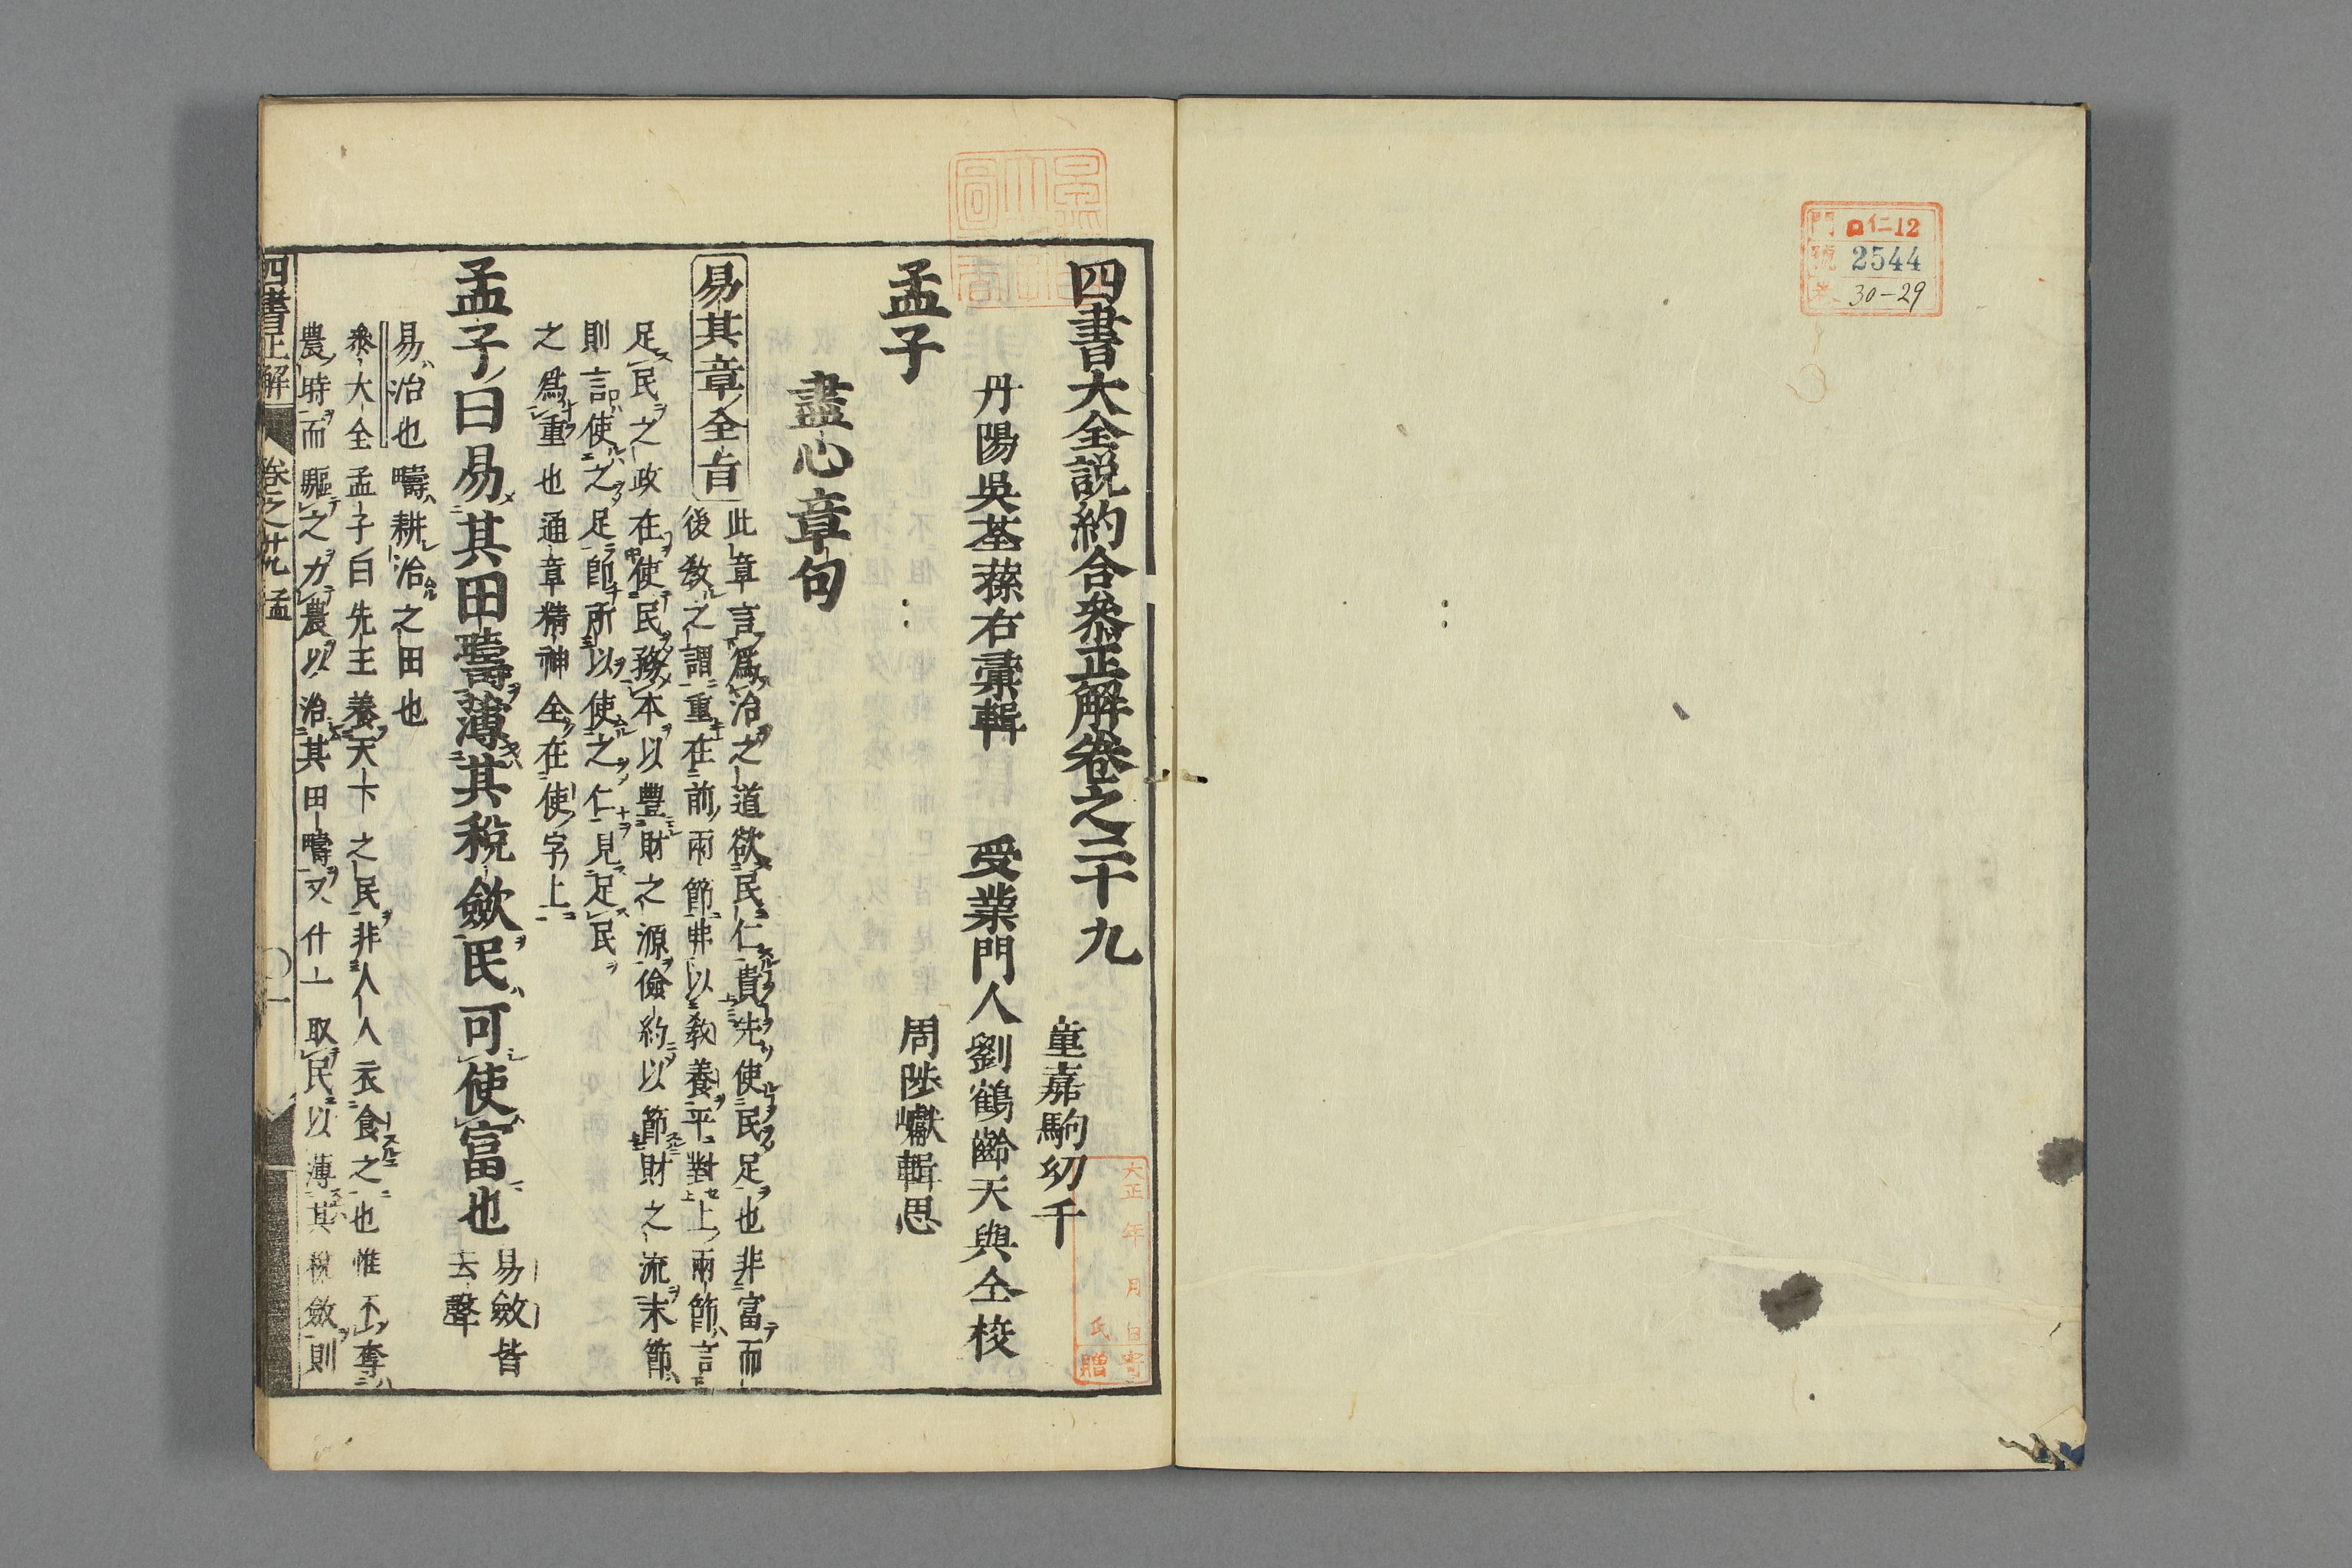 門 ロ仁12
號 2544
卷 30-29
四書大全説約合參正解卷之二十九
童嘉駒切千
丹陽吳荃蓀右彙輯 受業門人劉鶴齡天與仝校
周陟巘輯思
孟子
盡心章句
易其章全旨
此章言爲治之道欲民仁貴先使民足也非富而
後教之謂重在前兩節非以教養平對上兩節言
足民之政在使民務本以豐財之源儉約以節財之流末節
則言使之足卽所以使之仁見足民
之爲重也通章精神全在使字上
孟子曰易其田疇薄其稅斂民可使富也
易斂皆
去聲
易治也疇耕治之田也
參大全孟子曰先王養天下之民非人人衣食之也惟不奪
農時而驅之力農以治其田疇又什一取民以薄其稅斂則
四書正解 卷之廿九 孟 一
大正 年 月 日寄
氏 贈